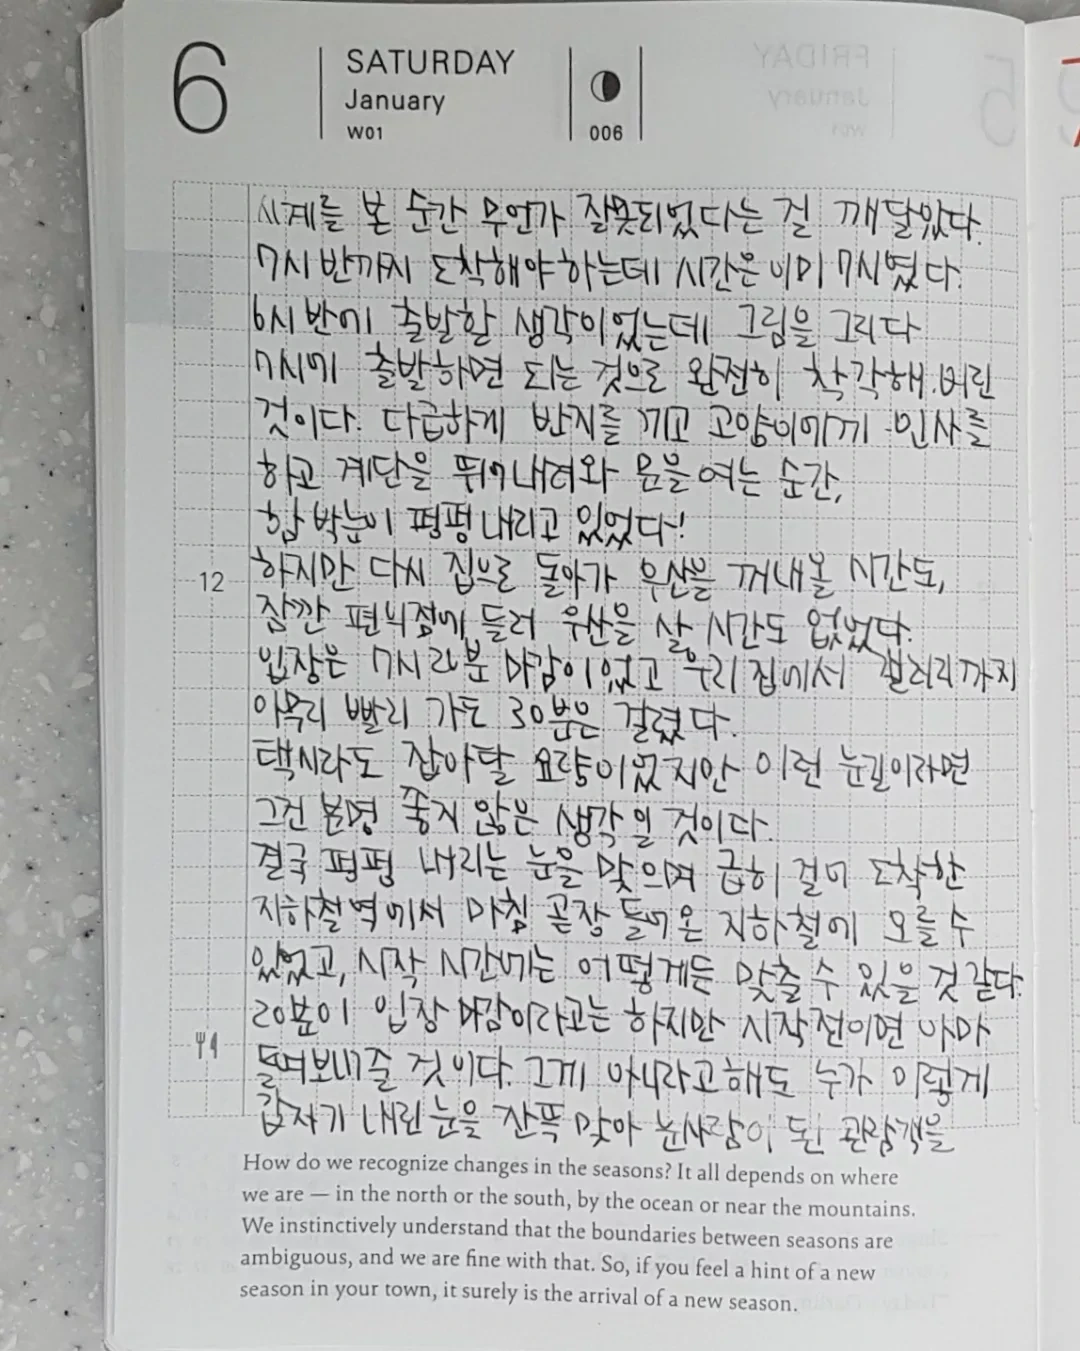 6
SATURDAY
January
W01
006
시계를 본 순간 무언가 잘못되었다는 걸 깨달았다.
7시 반까지 도착해야 하는데 시간은 이미 7시였다.
6시 반에 출발할 생각이었는데 그림을 그리다
7시에 출발하면 되는 것으로 완전히 착각해 버린
것이다. 다급하게 반지를 끼고 고양이에게 인사를
하고 계단을 뛰어내려와 문을 여는 순간,
함박눈이 펑펑 내리고 있었다!
12
하지만 다시 집으로 돌아가 우산을 꺼내올 시간도,
잠깐 편의점에 들러 우산을 살 시간도 없었다.
입장은 7시 마감이었고 우리 집에서 갤러리까지
아무리 빨리 가도 30분은 걸렸다.
택시라도 잡아탈 요량이었지만 이런 눈길이라면
그건 분명 좋지 않은 생각일 것이다.
결국 펑펑 내리는 눈을 맞으며 급히 걸어 도착한
지하철역에서 마침 곧장 들어온 지하철에 오를 수
있었고, 시작 시간에는 어떻게든 맞출 수 있을 것 같다.
20분이 입장 마감이라고는 하지만 시작 전이면 아마
들여보내줄 것이다. 그게 아니라고 해도 누가 이렇게
갑자기 내린 눈을 잔뜩 맞아 눈사람이 된 관람객을
How do we recognize changes in the seasons? It all depends on where
we are — in the north or the south, by the ocean or near the mountains.
We instinctively understand that the boundaries between seasons are
ambiguous, and we are fine with that. So, if you feel a hint of a new
season in your town, it surely is the arrival of a new season.